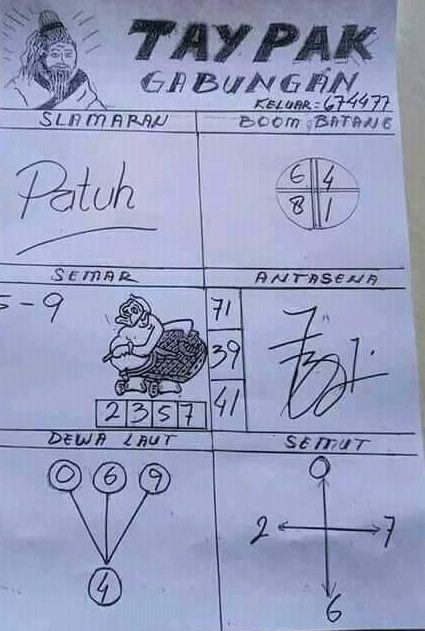 TAYPAK
GABUNGAN
KELUAR: 674477
SLAMARAN
BOOM BATANG
Patuh
6 4
8 1
SEMAR
ANTASENA
5-9
71
39
41
2 3 5 7
DEWA LAUT
SEMUT
0 6 9
4
0
2 7
6